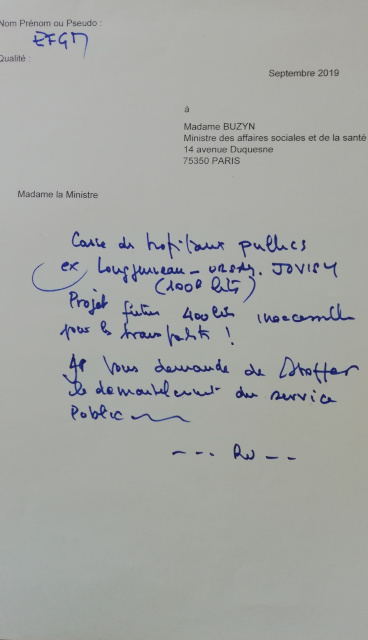 Nom Prénom ou Pseudo :
EFGM
Qualité :
Septembre 2019
à
Madame BUZYN
Ministre des affaires sociales et de la santé
14 avenue Duquesne
75350 PARIS
Madame la Ministre
Casse des hopitaux publics
ex Longjumeau - ORSAY. JUVISY
(1000 lits)
Projet futur 400 lits inaccessible
pour les transports !
Je vous demande de stopper
le demantelement du service
Public